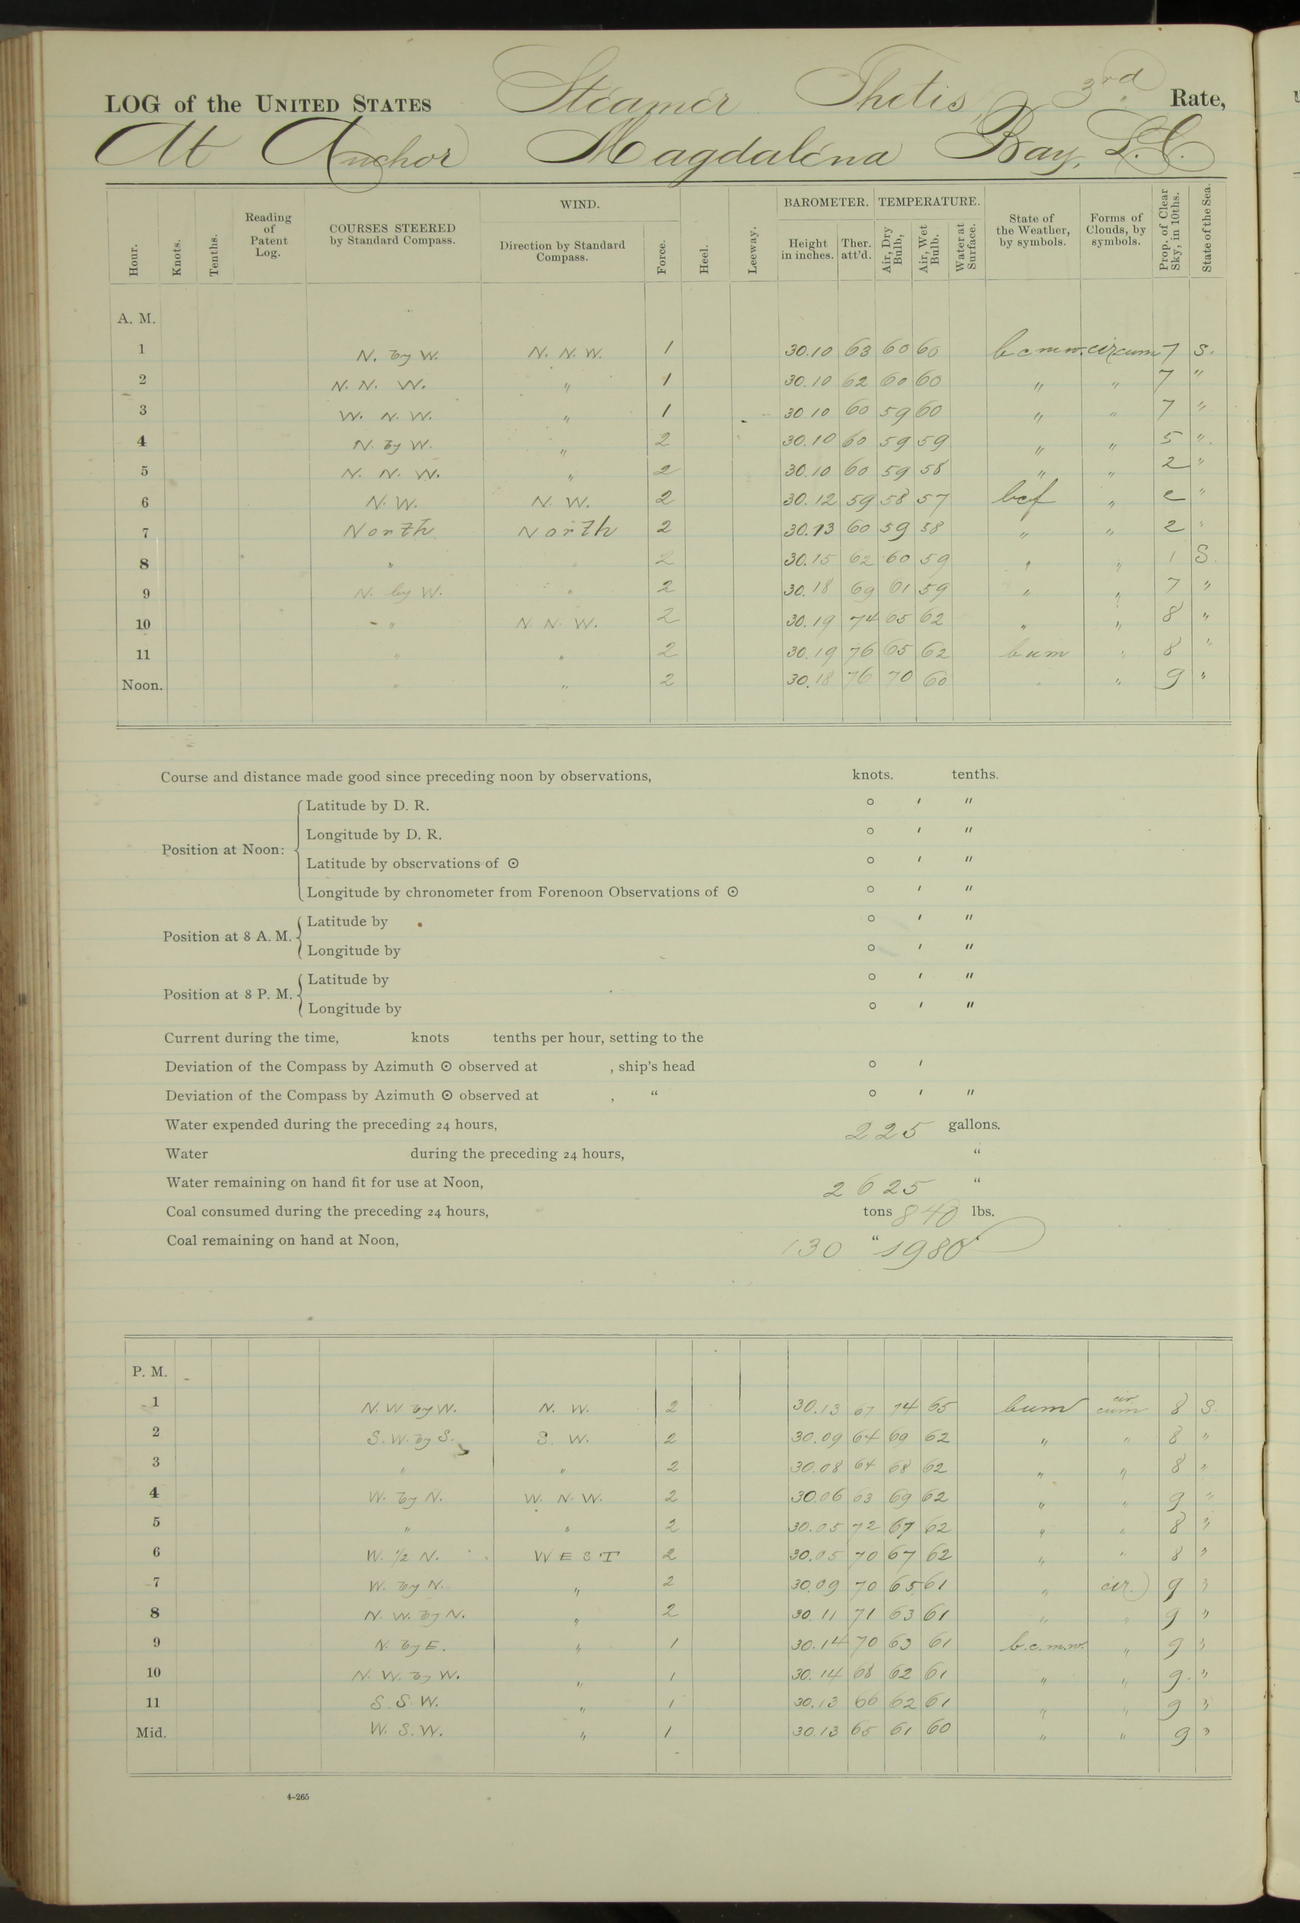 LOG of the UNITED STATES Steamer Thetis, 3rd Rate,
At Anchor Magdalena Bay, L.C.
Hour. Knots. Tenths. Reading of Patent Log. COURSES STEERED by Standard Compass. WIND. Direction by Standard Compass. Force. Heel. Leeway. BAROMETER. Height in inches. Ther. att'd. TEMPERATURE. Air, Dry Bulb, Air, Wet Bulb. Water at Surface. State of the Weather, by symbols. Forms of Clouds, by symbols. Prop. of Clear Sky, in 10ths. State of the Sea.
A. M.
1 N. by W. N. N. W. 1 30.10 63 60 60 b c m w. cir cum 7 S.
2 N. N. W. " 1 30.10 62 60 60 " " 7 "
3 W. N. W. " 1 30.10 60 59 60 " " 7 "
4 N. by W. " 2 30.10 60 59 59 " " 5 "
5 N. N. W. " 2 30.10 60 59 58 " " 2 "
6 N. W. N. W. 2 30.12 59 58 57 bcf " "
7 North North 2 30.13 60 59 58 " " 2 "
8 " " 2 30.15 62 60 59 " " 1 S.
9 N. by W. " 2 30.18 69 61 59 " " 7 "
10 " N N W. 2 30.19 74 65 62 " " 8 "
11 " " 2 30.19 76 65 62 " 8 "
Noon. " " 2 30.18 76 70 60 " " 9 "
Course and distance made good since preceding noon by observations, knots. tenths.
Position at Noon:
Latitude by D. R. ° ′ ″
Longitude by D. R. ° ′ ″
Latitude by observations of ⊙ ° ′ ″
Longitude by chronometer from Forenoon Observations of ⊙ ° ′ ″
Position at 8 A. M.
Latitude by ° ′ ″
Longitude by ° ′ ″
Position at 8 P. M.
Latitude by ° ′ ″
Longitude by ° ′ ″
Current during the time, knots tenths per hour, setting to the
Deviation of the Compass by Azimuth ⊙ observed at , ship's head ° ′
Deviation of the Compass by Azimuth ⊙ observed at , “ ° ′ ″
Water expended during the preceding 24 hours, 225 gallons.
Water during the preceding 24 hours, “
Water remaining on hand fit for use at Noon, 2625 “
Coal consumed during the preceding 24 hours, tons 840 lbs.
Coal remaining on hand at Noon, 130 “ 1980
P. M.
1 N. W by W. N. W. 2 30.13 67 74 65 cir cum 8 S.
2 S. W. by S. S. W. 2 30.09 64 69 62 " " 8 "
3 " " 2 30.08 64 68 62 " " 8 "
4 W. by N. W. N. W. 2 30.06 63 69 62 " " 9 "
5 " " 2 30.05 72 67 62 " " 8 "
6 W. 1/2 N. WEST 2 30.05 70 67 62 " " 8 "
7 W. by N. " 2 30.09 70 65 61 " cir. 9 "
8 N. W. by N. " 2 30.11 71 63 61 " " 9 "
9 N. by E. " 1 30.14 70 63 61 b.c.m.w. " 9 "
10 N. W. by W. " 1 30.14 68 62 61 " " 9 "
11 S. S. W. " 1 30.13 66 62 61 " " 9 "
Mid. W. S. W. " 1 30.13 65 61 60 " " 9 "
4-265